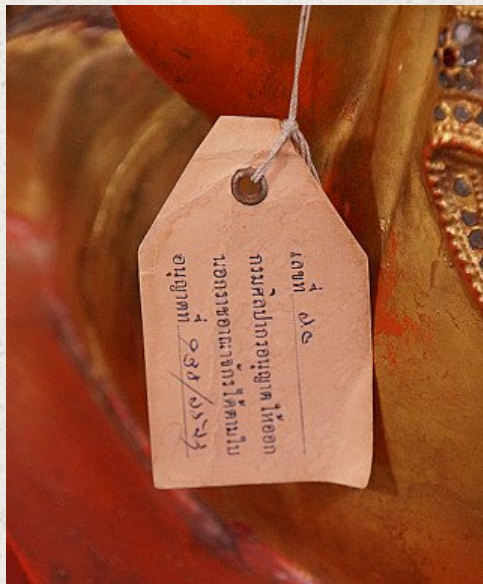 เลขที่
กรมศิลปากรอนุญาต ให้ออก
นอกราชอาณาจักรได้ตามใบ
อนุญาตที่